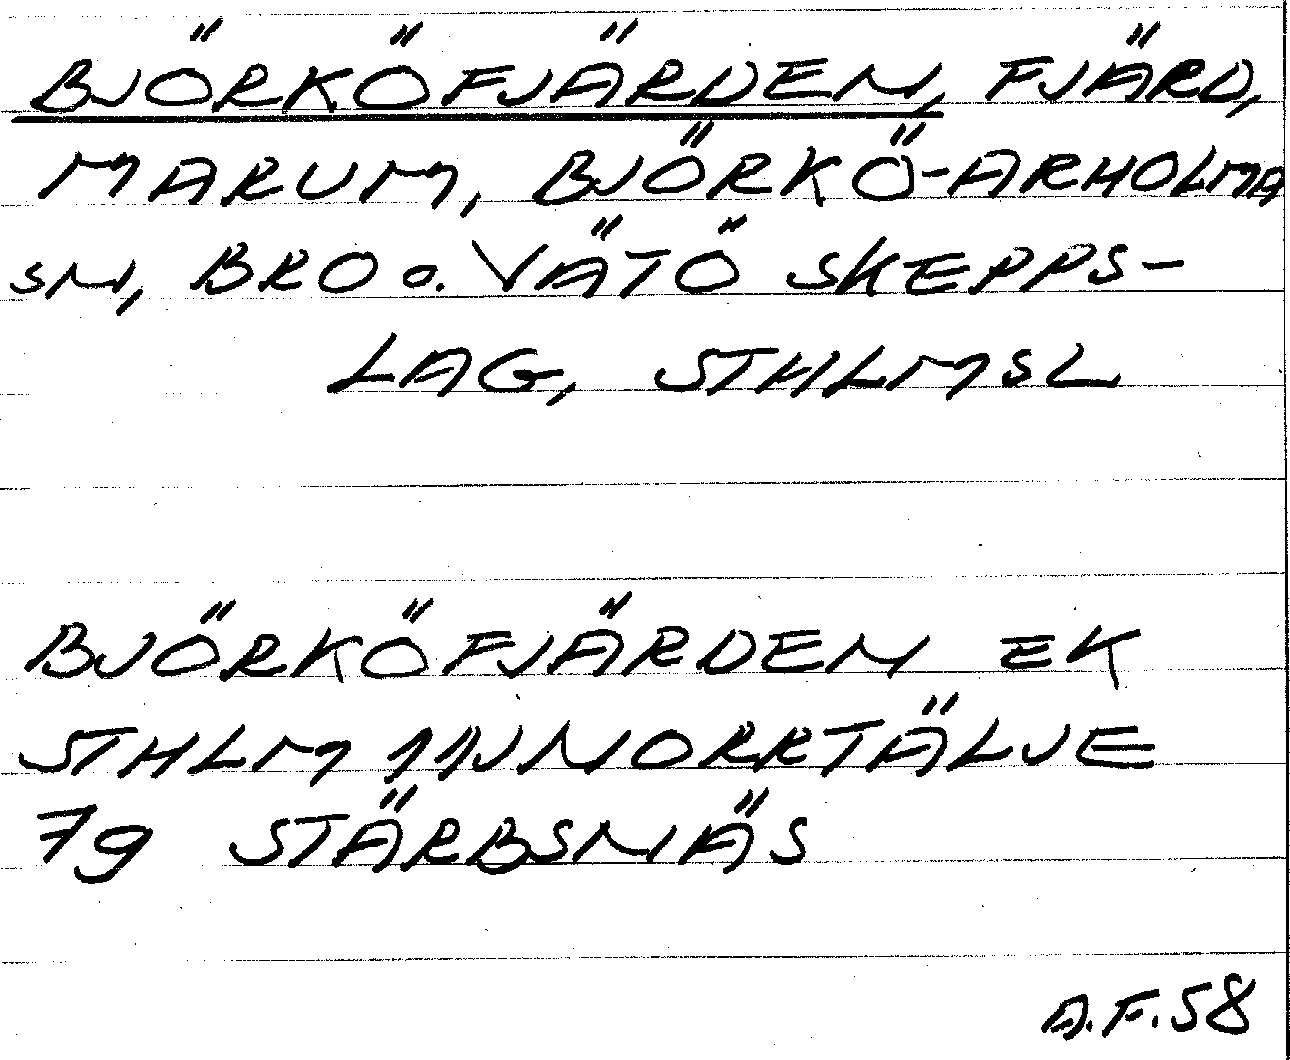 BJÖRKÖFJÄRDEN, FJÄRD,
MARUM, BJÖRKÖ-ARHOLMA
SN, BRO o. VÄTÖ SKEPPS-
LAG, STHLMSL
BJÖRKÖFJÄRDEN EK
STHLM 11J NORRTÄLJE
79 STÄRBSNÄS
A.F.58